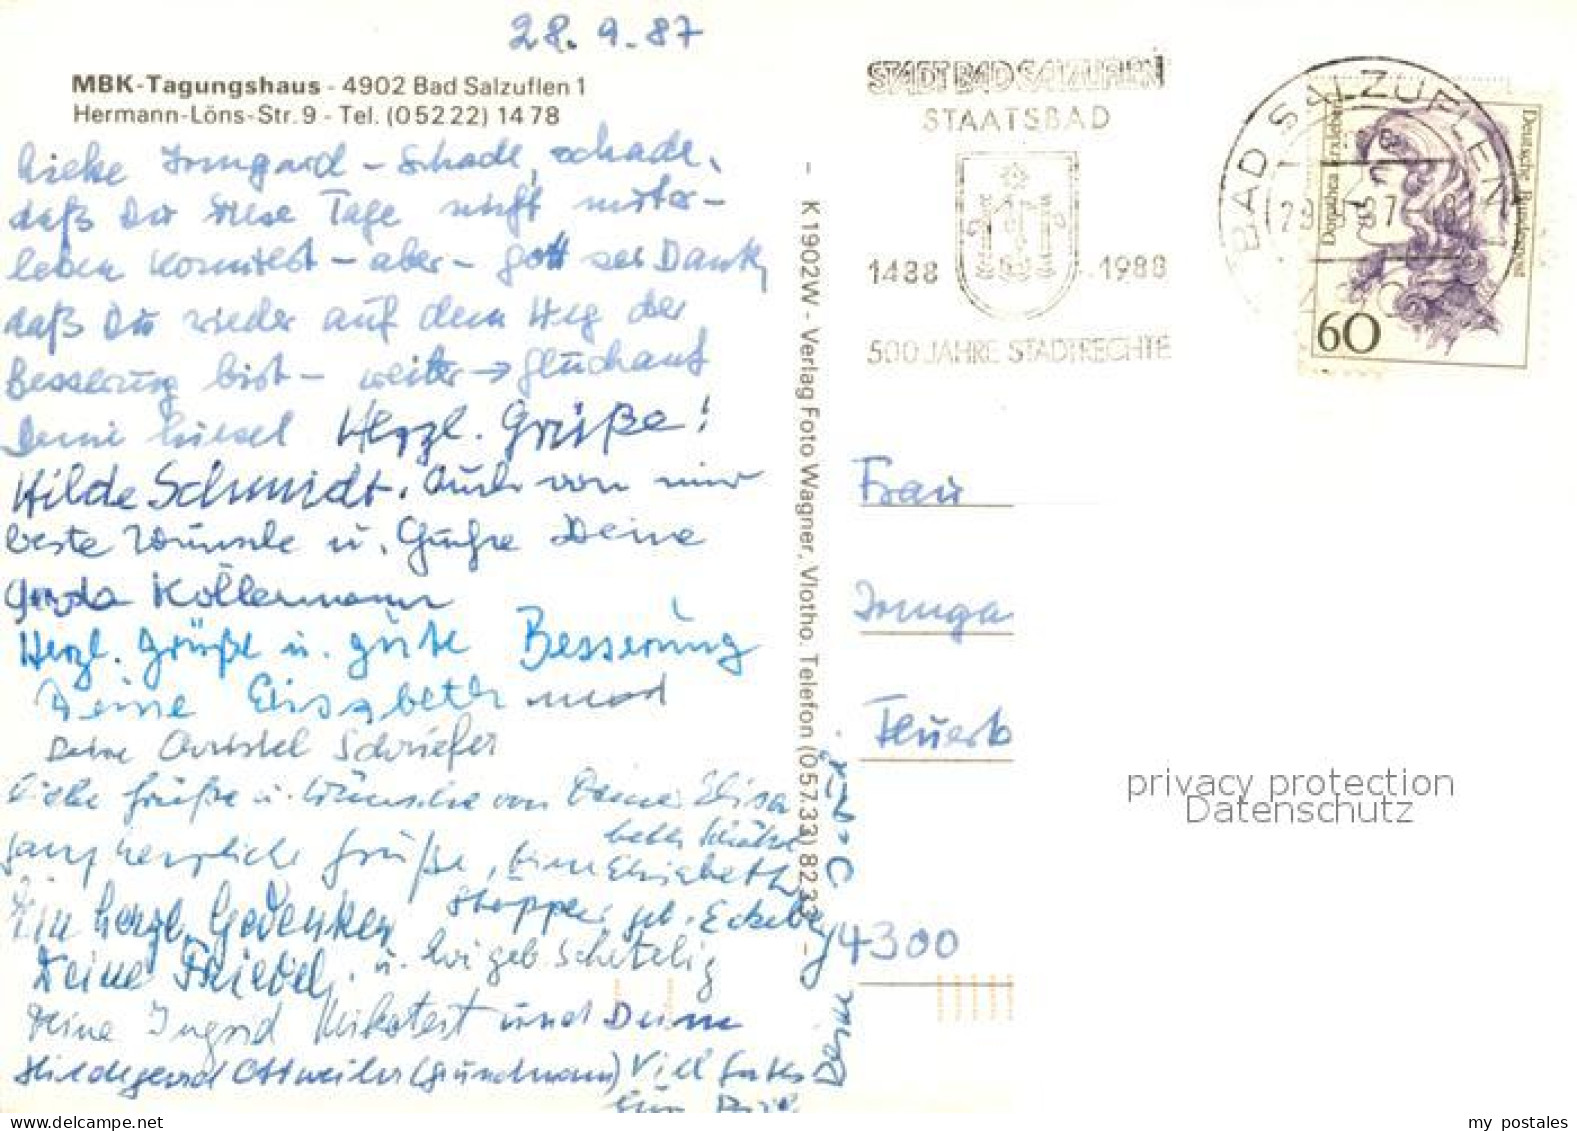 28.9.87
MBK-Tagungshaus - 4902 Bad Salzuflen 1
Hermann-Löns-Str. 9 - Tel. (05222) 1478
Liebe Irmgard - Schade, schade,
daß Du diese Tage nicht miter-
leben konntest - aber - gott sei Dank,
daß Du wieder auf dem Weg der
Besserung bist - weiter → glückauf
Deine Liesel Herzl. Grüße!
Hilde Schmidt. Auch von mir
beste Wünsche u. Grüße Deine
Gerda Kollermann
Herzl. Grüße u. gute Besserung
Deine Elisabeth und
Deine Christel Schriefer
Liebe Grüße u. Wünsche von Deiner Elisa
beth
ganz herzliche Grüße, Deine Elisabeth
geb.
Ein herzl. Gedenken
Deine Friedel. u. geb. Schetelig
Deine Ingrid und Deine
Hildegard Ottweiler (Grundmann) Viel Gutes
für Dich
Deine
K 1902W - Verlag Foto Wagner, Vlotho. Telefon (05733) 8233 -
STADT BAD SALZUFLEN
STAATSBAD
1488 1988
500 JAHRE STADTRECHTE
BAD SALZUFLEN 1
Dorothea Erxleben
Deutsche Bundespost
60
Frau
Irmga
Feuerb
4300
privacy protection
Datenschutz
my postales